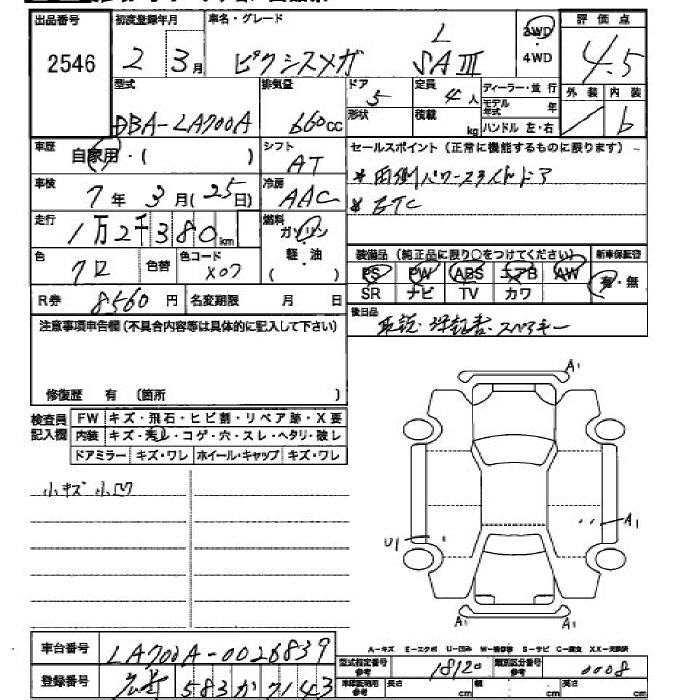 出品番号 初度登録年月 車名・グレード 評価点
2546 2 3月 ピクシスメガ L SAⅢ 2WD・4WD 4.5
型式 排気量 ドア 定員 ディーラー・並行 外装 内装
DBA-LA700A 660cc 5 4人 モデル年式 年 b
形状 積載 kg ハンドル 左・右
車歴 自家用・( ) シフト AT セールスポイント（正常に機能するものに限ります）
車検 7年3月(25日) 冷房 AAC *両側パワースライドドア
*ETC
走行 1万2千380km 燃料 ガソリン・軽・油 ( )
色 クロ 色替 色コード X07 装備品（純正品に限り○をつけてください） 新車保証書
PS PW ABS エアB AW 有・無
SR ナビ TV カワ
R券 8560円 名変期限 月 日 後日品
取説・保証書・スペアキー
注意事項申告欄（不具合内容等は具体的に記入して下さい）
修復歴 有 （箇所 ）
検査員記入欄 FW キズ・飛石・ヒビ割・リペア跡・X要
内装 キズ・汚れ・コゲ・穴・スレ・ヘタリ・破レ
ドアミラー キズ・ワレ ホイール・キャップ キズ・ワレ
小キズ 小凹
A1
U1 A1
A1 A1
A-キズ E-エクボ U-凹み S-サビ C-腐食 XX-交換済
車台番号 LA700A-0026839 型式指定番号 参考 18120 類別区分番号 参考 0008
登録番号 583 か 7143 長さ cm 幅 cm 高さ cm